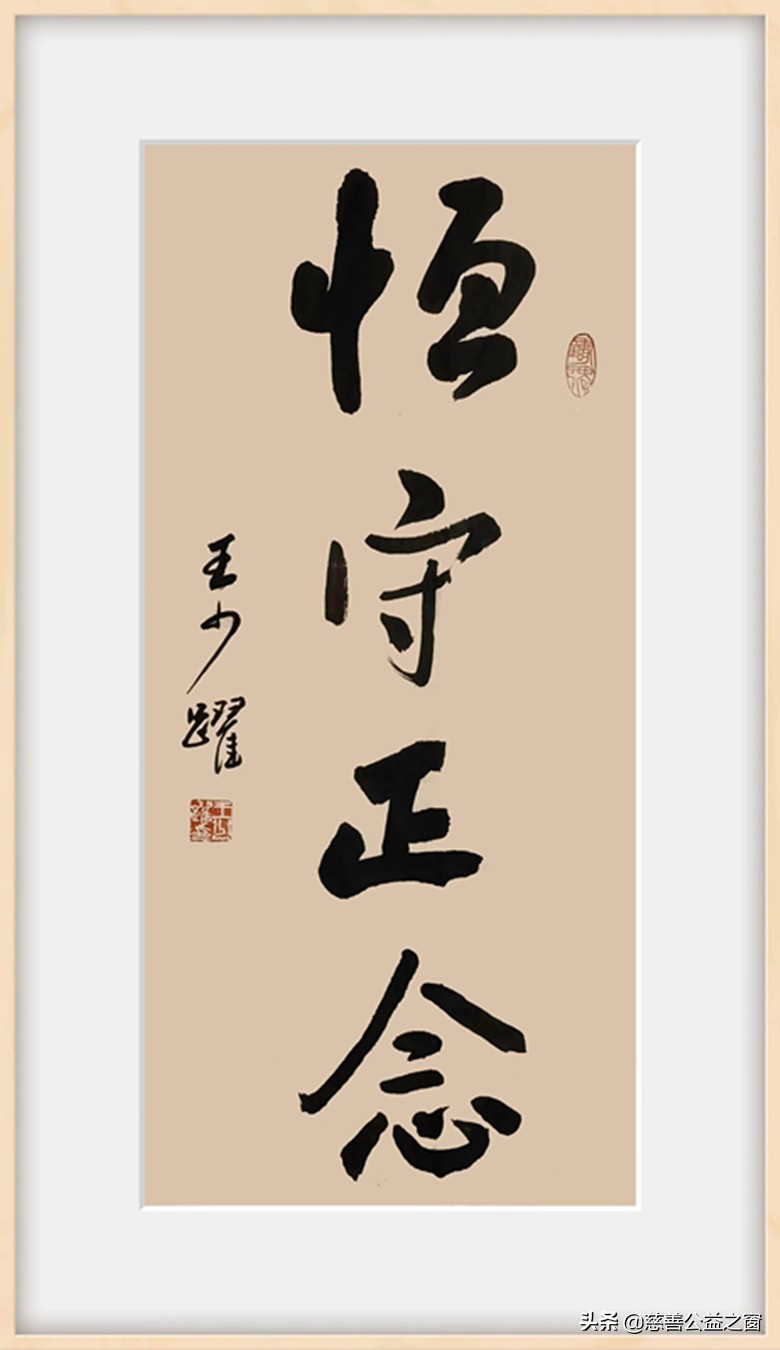 恒守正念
王少躍
头条 @慈善公益之窗